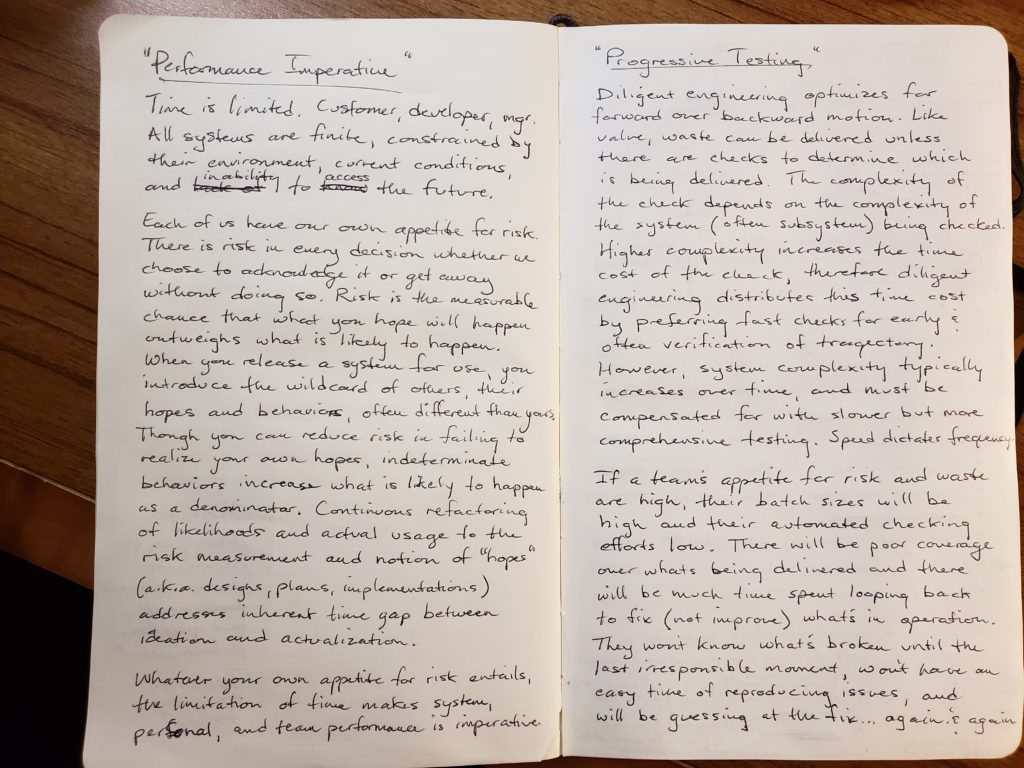 "Performance Imperative"
Time is limited. Customer, developer, mgr.
All systems are finite, constrained by
their environment, current conditions,
and inability to access the future.
Each of us have our own appetite for risk.
There is risk in every decision whether we
choose to acknowledge it or get away
without doing so. Risk is the measurable
chance that what you hope will happen
outweighs what is likely to happen.
When you release a system for use, you
introduce the wildcard of others, their
hopes and behaviors, often different than yours.
Though you can reduce risk in failing to
realize your own hopes, indeterminate
behaviors increase what is likely to happen
as a denominator. Continuous refactoring
of likelihoods and actual usage to the
risk measurement and notion of "hopes"
(a.k.a. designs, plans, implementations)
addresses inherent time gap between
ideation and actualization.
Whatever your own appetite for risk entails,
the limitation of time makes system,
personal, and team performance is imperative.
"Progressive Testing"
Diligent engineering optimizes for
forward over backward motion. Like
value, waste can be delivered unless
there are checks to determine which
is being delivered. The complexity of
the check depends on the complexity of
the system (often subsystem) being checked.
Higher complexity increases the time
cost of the check, therefore diligent
engineering distributes this time cost
by preferring fast checks for early &
often verification of tragectory.
However, system complexity typically
increases over time, and must be
compensated for with slower but more
comprehensive testing. Speed dictates frequency.
If a team's appetite for risk and waste
are high, their batch sizes will be
high and their automated checking
efforts low. There will be poor coverage
over whats being delivered and there
will be much time spent looping back
to fix (not improve) what's in operation.
They won't know what's broken until the
last irresponsible moment, won't have an
easy time of reproducing issues, and
will be guessing at the fix... again & again